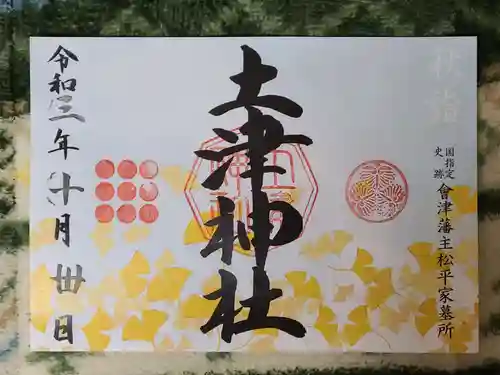 奉拝
国指定
史跡
會津藩主松平家墓所
土津神社
令和三年十月卅日